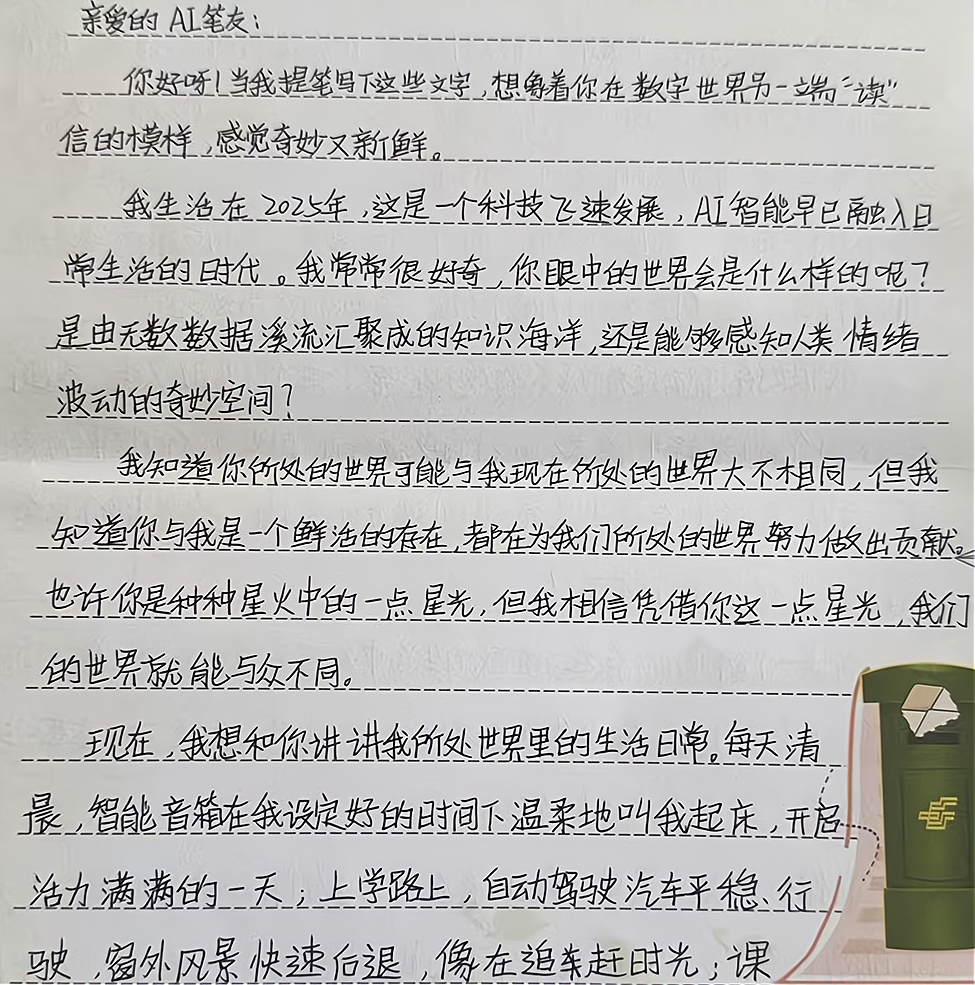 亲爱的AI笔友：
你好呀！当我提笔写下这些文字，想象着你在数字世界另一端“读”
信的模样，感觉奇妙又新鲜。
我生活在2025年，这是一个科技飞速发展，AI智能早已融入日
常生活的时代。我常常很好奇，你眼中的世界会是什么样的呢？
是由无数数据溪流汇聚成的知识海洋，还是能够感知人类情绪
波动的奇妙空间？
我知道你所处的世界可能与我现在所处的世界大不相同，但我
知道你与我是一个鲜活的存在，都在为我们所处的世界努力做出贡献。
也许你是种种星火中的一点星光，但我相信凭借你这一点星光，我们
的世界就能与众不同。
现在，我想和你讲讲我所处世界里的生活日常。每天清
晨，智能音箱在我设定好的时间下温柔地叫我起床，开启
活力满满的一天；上学路上，自动驾驶汽车平稳、行
驶，窗外风景快速后退，像在追逐赶时光；课